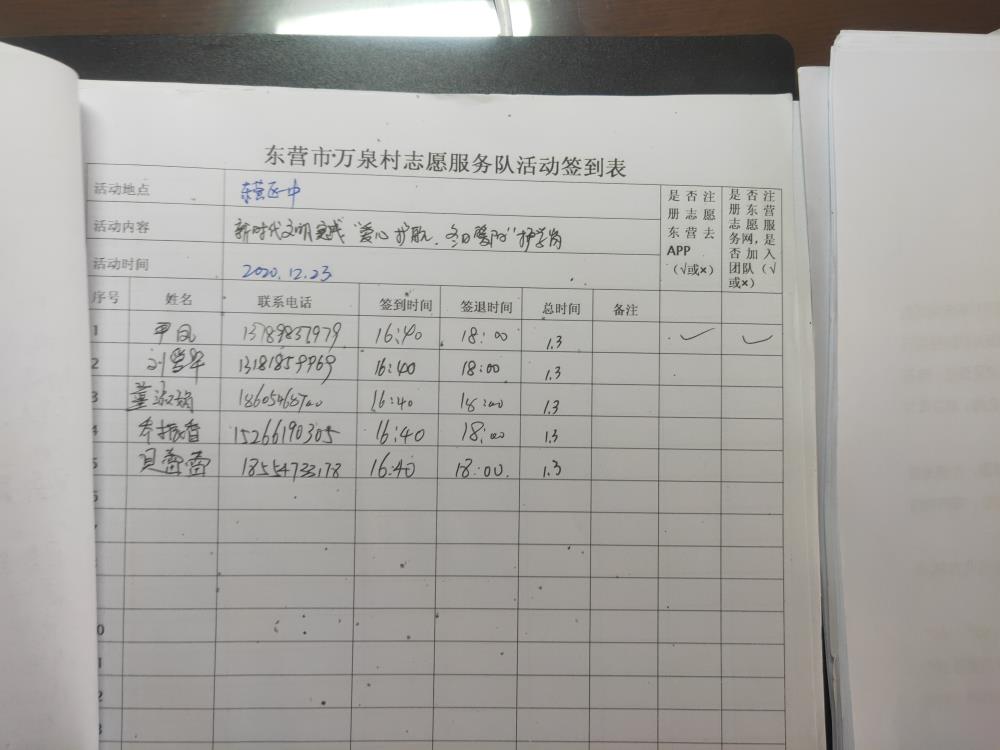 东营市万泉村志愿服务队活动签到表
活动地点 东营区一中
活动内容 新时代文明实践“爱心护航、冬日暖阳”护学岗
活动时间 2020.12.23
是否注册志愿东营去APP（√或×）
是否注册东营志愿服务网，是否加入团队（√或×）
序号 姓名 联系电话 签到时间 签退时间 总时间 备注
1 16:40 18:00 1.3 ✓ ✓
2 13181859969 16:40 18:00 1.3
3 董淑娟 16:40 18:00 1.3
4 李振香 15266190305 16:40 18:00 1.3
5 18554733178 16:40 18:00. 1.3
6
0
1
2
3